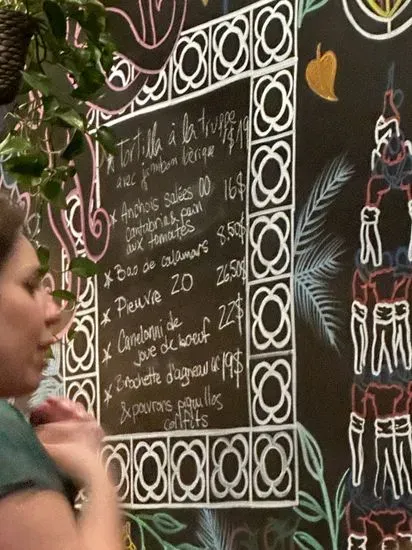 * Tortilla à la truffe 19$
avec jambon Ibérique
* Anchois salées 00 16$
cantabrias, pain
aux tomates
* Bao de calamars 8.50$
* Pieuvre 2.0 26,50$
* Canelonni de 22$
joue de boeuf
* Brochette d'agneau 19$
& poivrons piquillos
confits